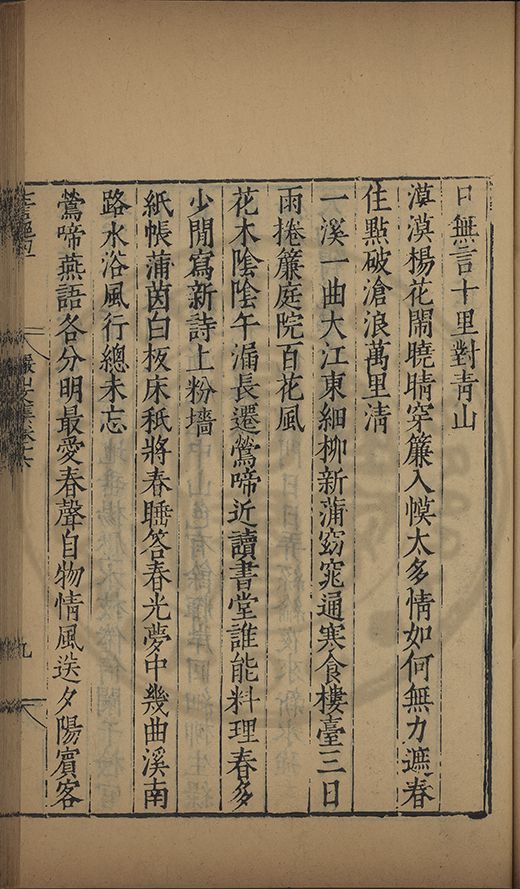 日無言十里對青山
漠漠楊花鬧曉晴穿簾入幙太多情如何無力遮春
住點破滄浪萬里淸
一溪一曲大江東細柳新蒲窈窕通寒食樓臺三日
雨捲簾庭院百花風
花木陰陰午漏長遷鶯啼近讀書堂誰能料理春多
少閒寫新詩上粉墻
紙帳蒲茵白板床秖將春睡答春光夢中幾曲溪南
路水浴風行總未忘
鶯啼燕語各分明最愛春聲自物情風送夕陽賔客
九